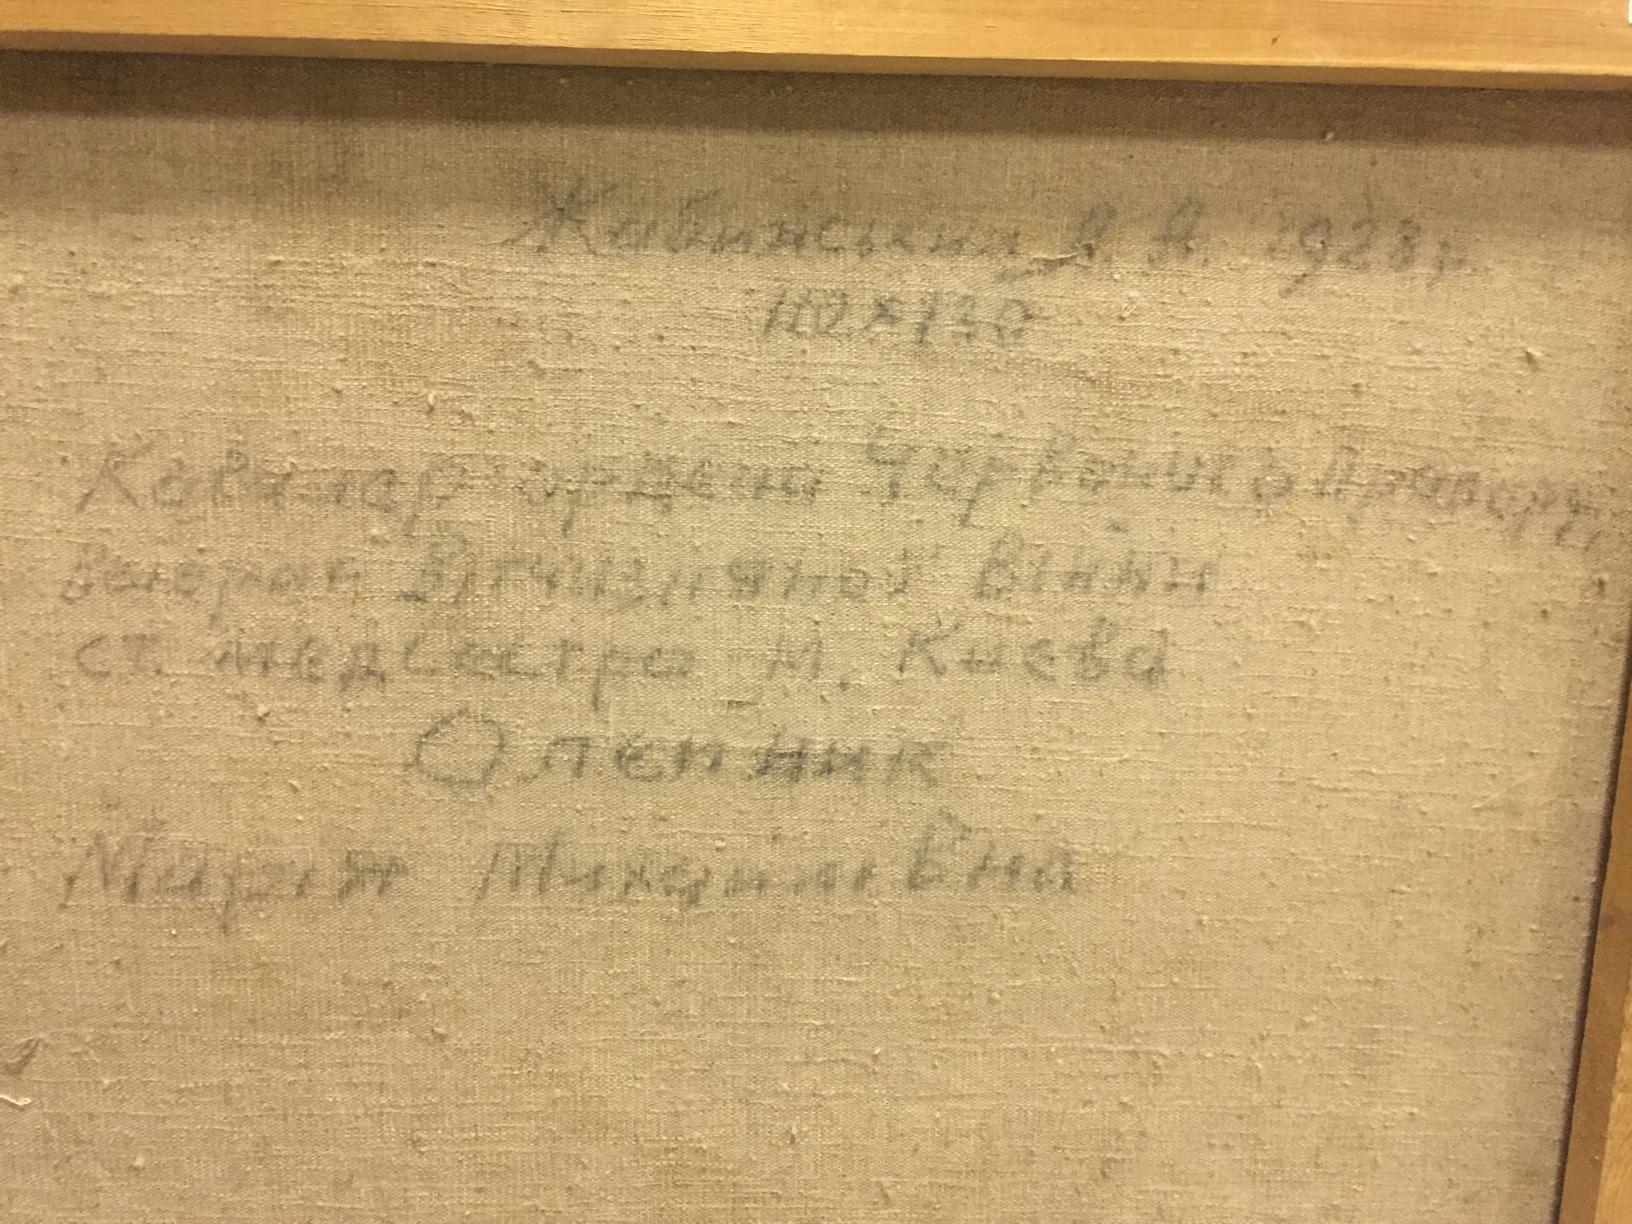 Жабинський В. Я. 1928 г.
110 х 130
Кавалер ордена Червоного Прапору,
ветеран Вітчизняної Війни
ст. медсестра м. Києва
Олейник
Марія Михайлівна